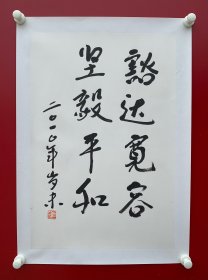 豁达宽容
坚毅平和
二〇一〇年岁末